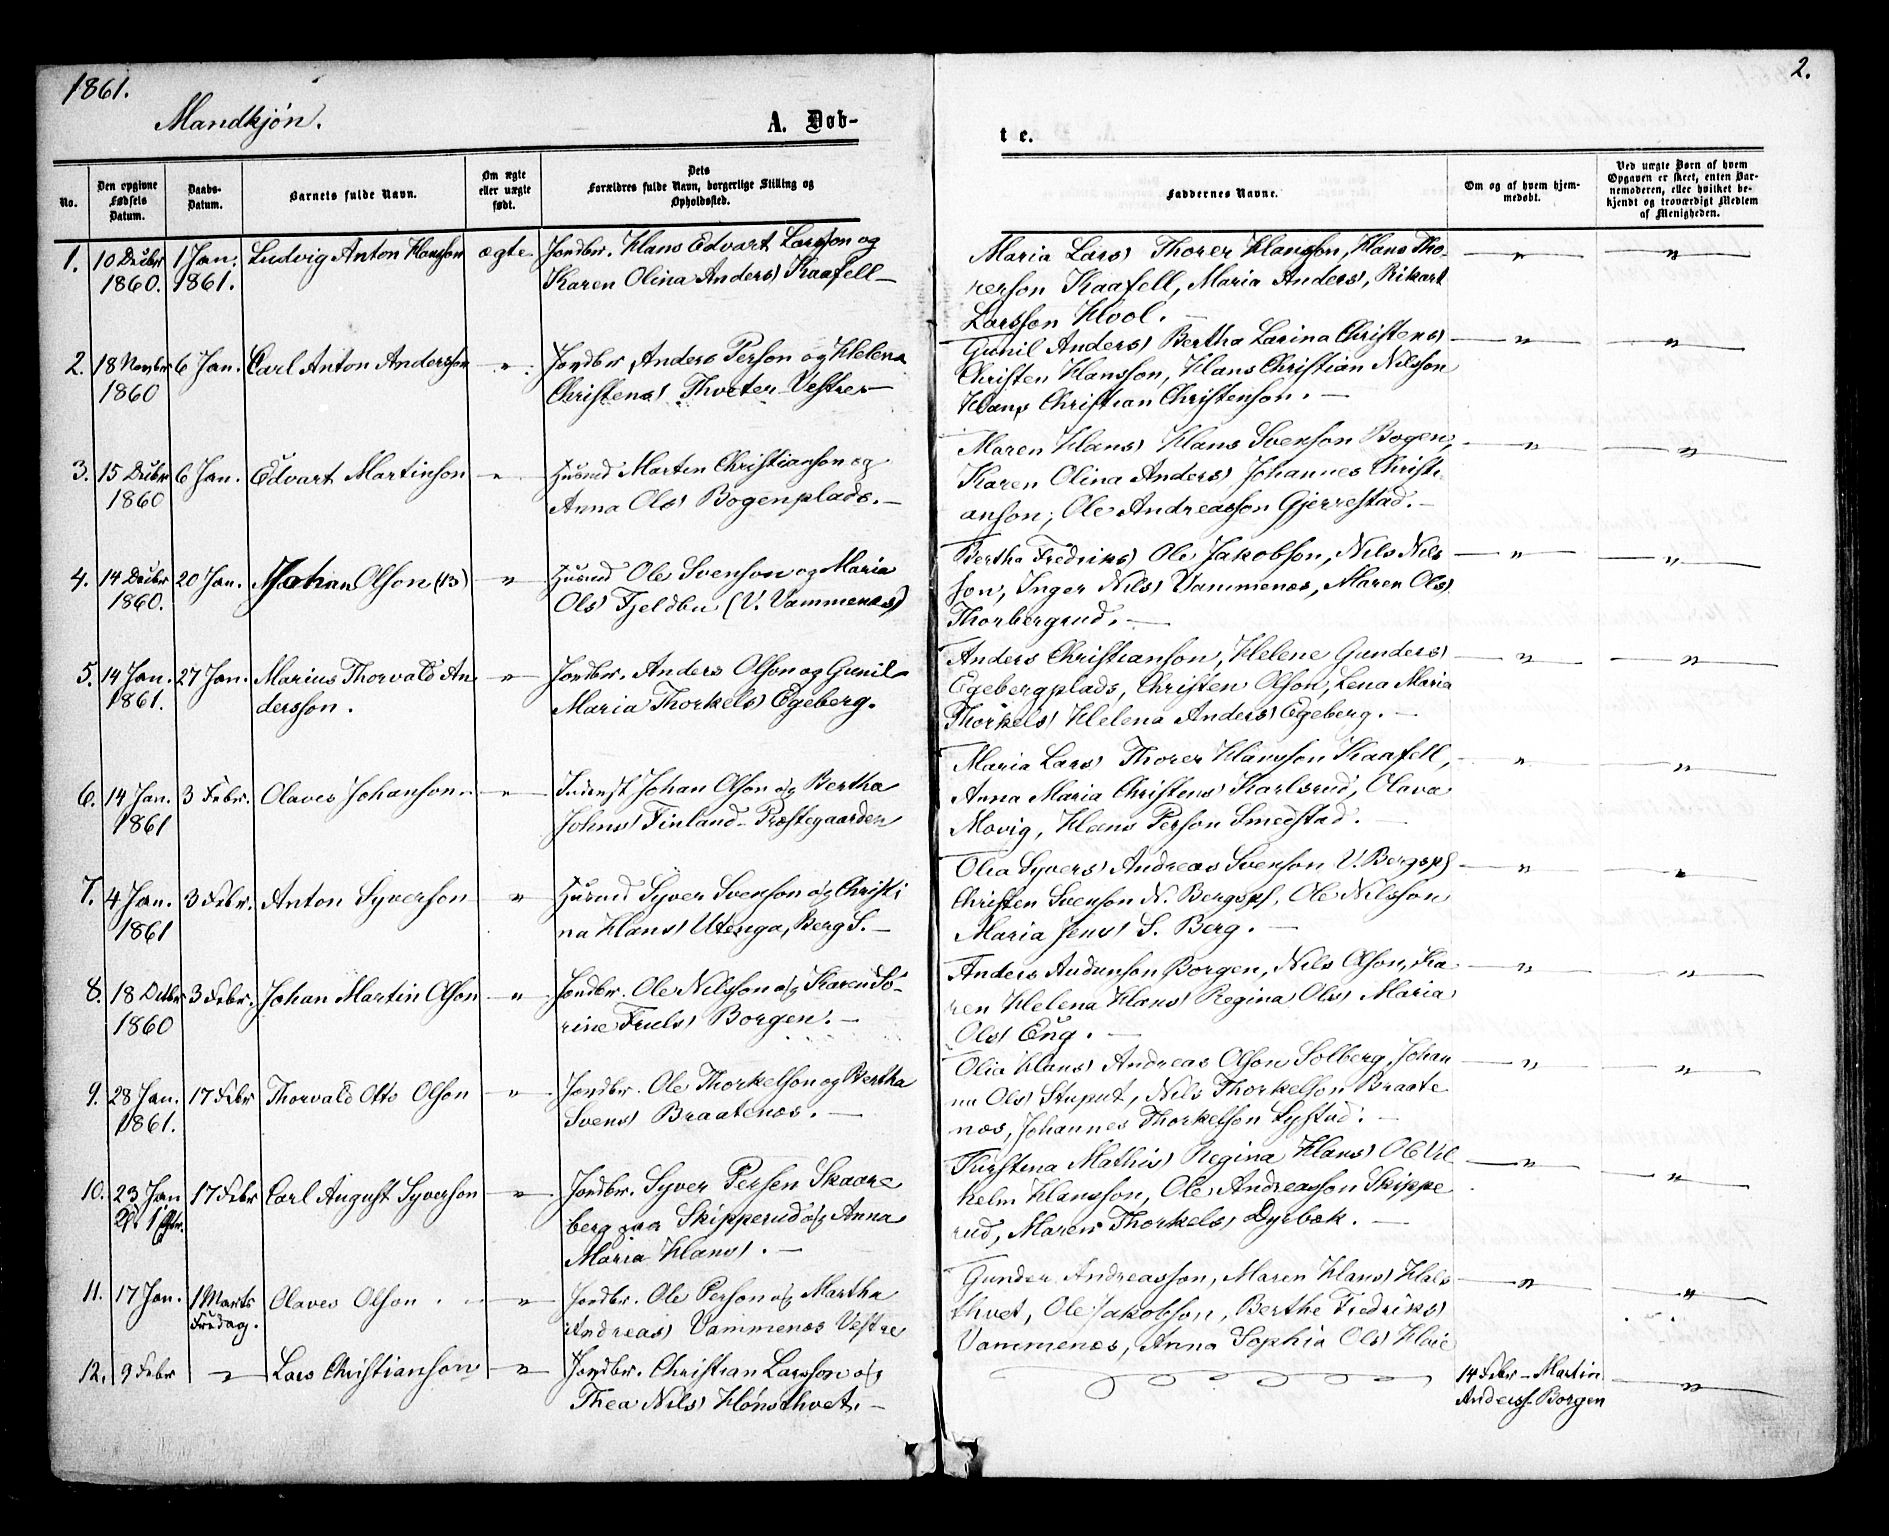 1861.
2.
Mandkjøn.
A. Døb-
te.
No.
Den opgivne Fødsels Datum.
Daabs-Datum.
Barnets fulde Navn.
Om ægte eller uægte født.
Dets Forældres fulde Navn, borgerlige Stilling og Opholdssted.
Faddernes Navne.
Om og af hvem hjemmedøbt.
Ved uægte Børn af hvem Opgaven er skeet, enten Barnemoderen, eller hvilket bekjendt og troværdigt Medlem af Menigheden.
1. 10 Decbr 1 Jan. Ludvig Anton Hansson ægte Jordbr. Hans Edvart Larsson og
1860. 1861. Karen Olina Anders) Kaafell –
Maria Lars) Thorer Hansson, Hans Tho-
rerson Kaafell, Maria Anders), Rikart
Larsson Hvol. –
2. 18 Novbr 6 Jan. Carl Anton Andersson " Jordbr. Anders Person og Helena
1860 Christens) Thveter Vestre –
Gunil Anders) Bertha Larina Christens)
Christen Hansson, Hans Christian Nilsson
Hans Christian Christenson. –
3. 15 Decbr 6 Jan. Edvart Martinson " Husmd Marten Christianson og
1860 Anna Ols) Bogenplads. –
Maren Hans) Hans Svenson Bogen,
Karen Olina Anders) Johannes Christi-
anson, Ole Andreasson Gjerrestad. –
4. 14 Decbr 20 Jan. Johan Olson (13) " Husmd Ole Svenson og Maria
1860. Ols) Fjeldbu (V. Vammenæs)
Bertha Fredriks) Ole Jakobson, Nils Nils-
son, Inger Nils) Vammenæs, Maren Ols)
Thorbergrud. –
5. 14 Jan. 27 Jan. Marius Thorvald An- " Jordbr. Anders Olson og Gunil
1861. dersson. Maria Thorkels) Egeberg.
Anders Christianson, Helene Gunders)
Egebergplads, Christen Olson, Lena Maria
Thorkels) Helena Anders) Egeberg. –
6. 14 Jan. 3 Febr. Olaves Johanson. " Johan Olson og Bertha
1861 Johns) Finland Præstegaarden
Maria Lars) Thorer Hansson Kaafell,
Anna Maria Christens) Karlsrud, Olava
Movig, Hans Person Smedstad. –
7. 4 Jan. 3 Febr. Anton Syverson " Husmd Syver Svenson og Christi
1861 na Hans) Utenga, Berg S. –
Olea Syvers) Andreas Svenson V. Bergspl
Christen Svenson N. Bergspl, Ole Nilsson
Maria Jens) S. Berg. –
8. 18 Decbr 3 Febr. Johan Martin Olson " Jordbr. Ole Nilsson og Karen So-
1860 rine Truls) Borgen. –
Anders Audunson Borgen, Nils Olson, Ka-
ren Helena Hans) Regina Ols) Maria
Ols) Eng. –
9. 28 Jan. 17 Febr Thorvald Otto Olson " Jordbr. Ole Thorkelson og Bertha
1861. Svens) Braatenæs. –
Olia Hans) Andreas Olson Solberg, Johan
na Ols) Stuput, Nils Thorkelson Braate
næs, Johannes Thorkelson Lystad. –
10. 23 Jan 17 Febr Carl August Syverson " Jordbr. Syver Persen Skaare
berg paa Skipperud og Anna
Maria Hans). –
Mathis) Regina Hans) Ole Vil
helm Hansson, Ole Andreasson Skippe
rud, Maren Thorkels) Dyrbæk. –
11. 17 Jan. 1 Marts Olaves Olson. " Jordbr. Ole Person og Martha
Fredag. Andreas) Vammenæs Vestre
Gunder Andreasson, Maren Hans) Hals
thvet, Ole Jakobson, Berthe Fredriks)
Vammenæs, Anna Sophia Ols) Hvie
12. 9 Febr " Lars Christianson " Jordbr. Christian Larsson og
Thea Nils) Hønsthvet. –
14 Febr – Martin
Anderss. Borgen